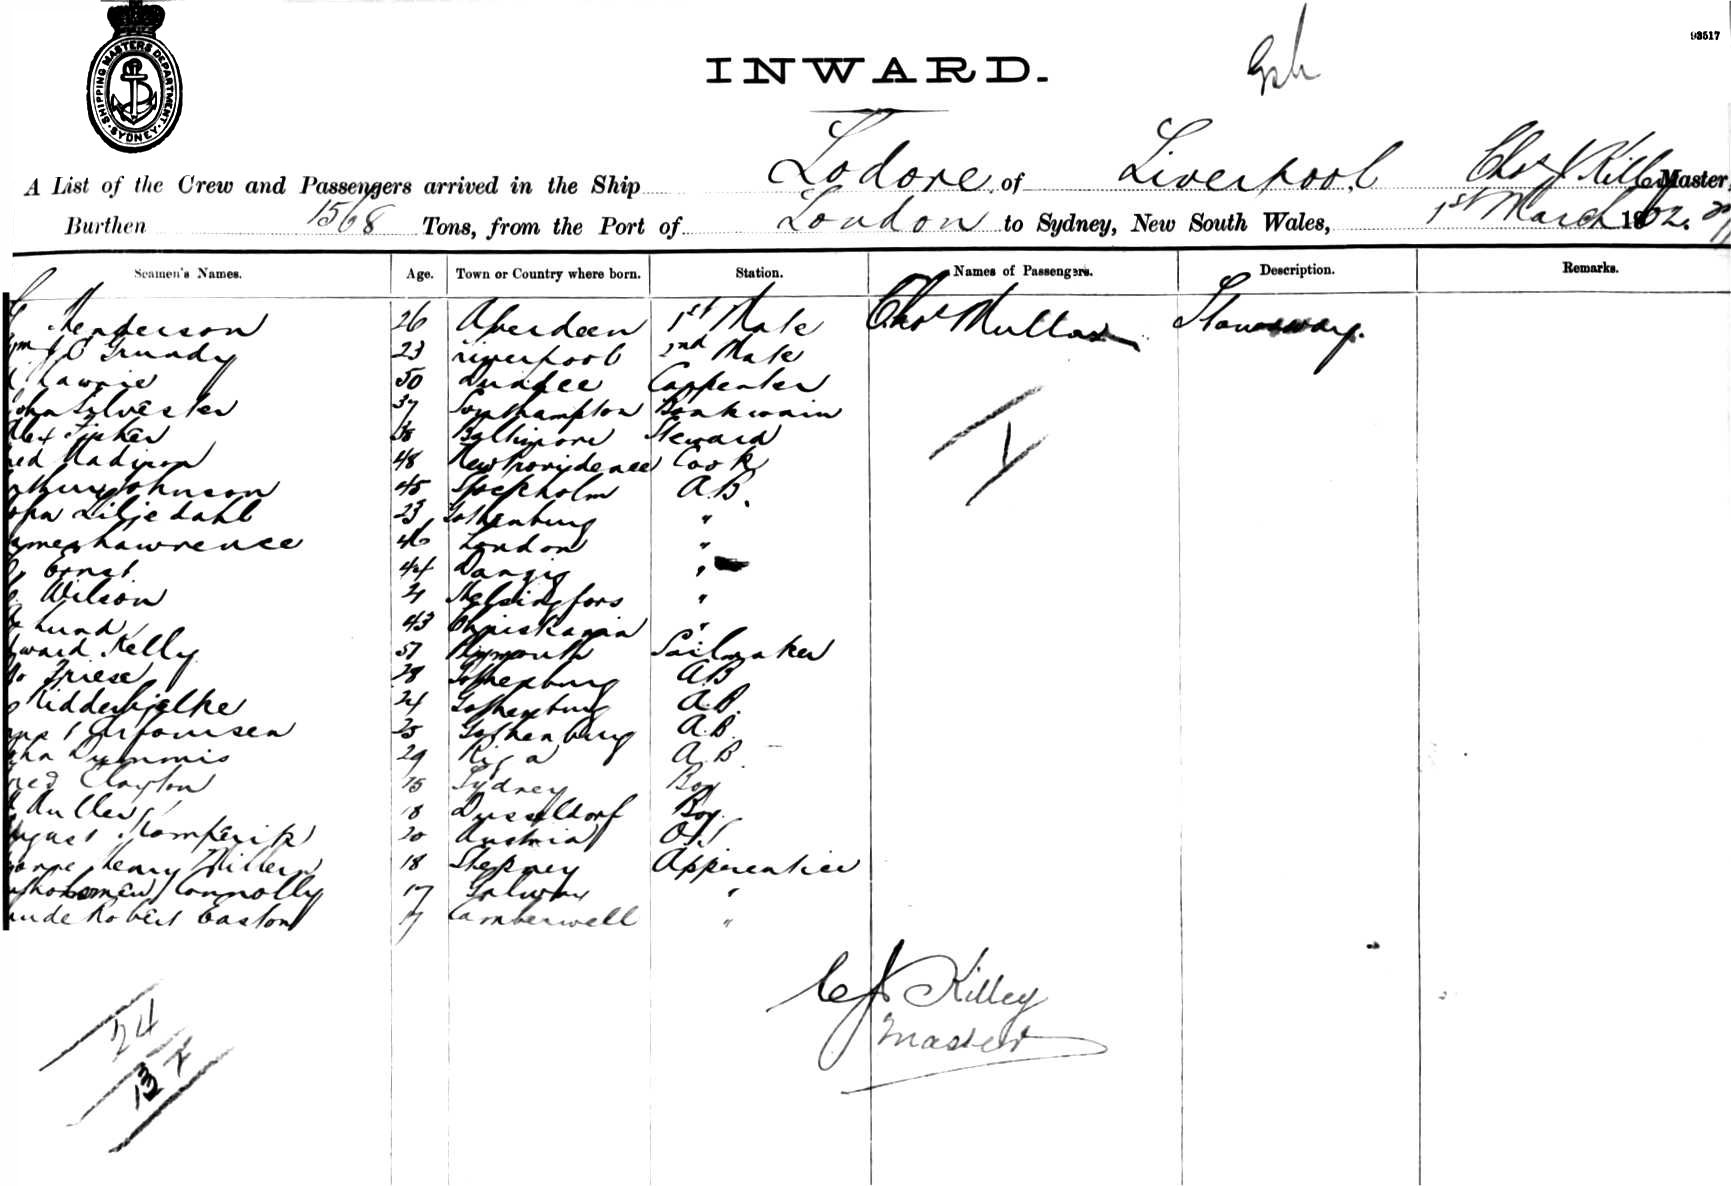 93517
SHIPPING MASTERS DEPARTMENT
SYDNEY
INWARD.
A List of the Crew and Passengers arrived in the Ship Lodore of Liverpool Chas J Killey Master,
Burthen 1568 Tons, from the Port of London to Sydney, New South Wales, 1st March 1902.
Seamen's Names. Age. Town or Country where born. Station. Names of Passengers. Description. Remarks.
Henderson 26 Aberdeen 1st Mate Chas Mullan Stowaway.
Grundy 23 Liverpool 2nd Mate
Lawrie 50 Dundee Carpenter
John Silvester 37 Southampton Boatswain
Alex Fisher 38 Baltimore Steward
Madison 48 New Providence Cook
Johnson 45 Stockholm A.B.
Liljedahl 23 Gothenburg "
James Lawrence 46 London "
Ernst 44 Danzig "
Wilson 21 Helsingfors "
Lund 43 Christiania "
Edward Kelly 57 Plymouth Sailmaker
Friese 28 Gothenburg AB
Ridderbjelke 24 Gothenburg A.B.
25 Gothenburg A.B.
John Dummis 29 Riga A.B.
Fred Clayton 15 Sydney Boy
Muller 18 Dusseldorf Boy.
August 20 Austria O.S
George Henry 18 Stepney Apprentice
Bartholomew Connolly 17 Galway "
Claude Robert Easton 17 Camberwell "
1
C J Killey
Master
24